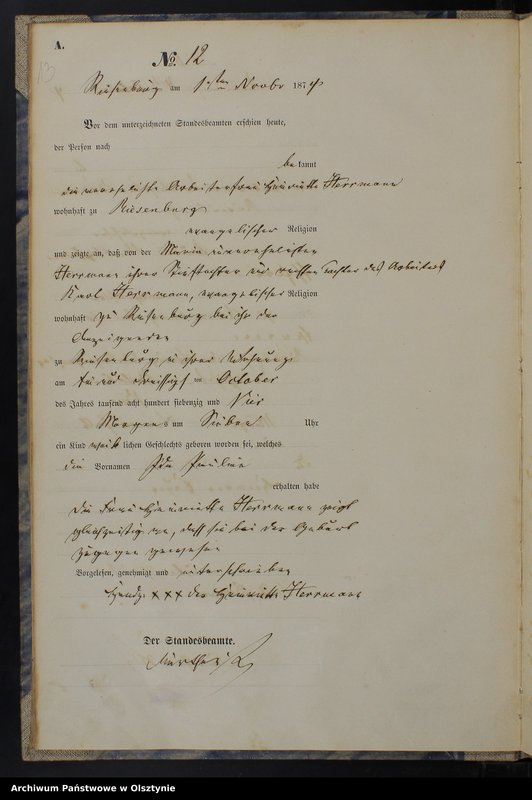 A.
13
No. 12
Riesenburg am 1sten Novbr 1874
Vor dem unterzeichneten Standesbeamten erschien heute,
der Person nach
bekannt
die verehelichte Arbeiterfrau Henriette Herrmann
wohnhaft zu Riesenburg
evangelischer Religion
und zeigte an, daß von der Maria unverehelichten
Herrmann ihrer Stieftochter der Tochter des Arbeiters
Karl Herrmann, evangelischer Religion
wohnhaft zu Riesenburg bei ihr der
Anzeigenden
zu Riesenburg in ihrer Wohnung
am ein und dreissigsten October
des Jahres tausend acht hundert siebenzig und Vier
Morgens um Sieben Uhr
ein Kind weiblichen Geschlechts geboren worden sei, welches
die Vornamen Ida Pauline
erhalten habe
Die Frau Henriette Herrmann zeigt
gleichzeitig an, daß sie bei der Geburt
zugegen gewesen
Vorgelesen, genehmigt und unterschrieben
Handz. xxx der Henriette Herrmann
Der Standesbeamte.
Archiwum Państwowe w Olsztynie